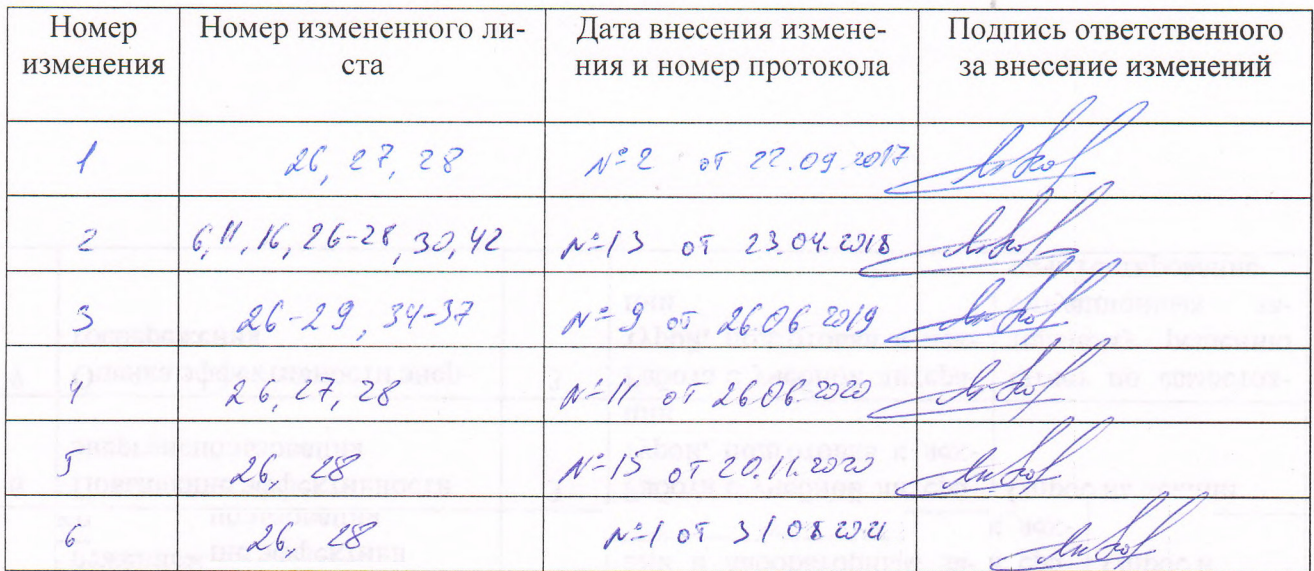 Номер изменения | Номер измененного ли-ста | Дата внесения измене-ния и номер протокола | Подпись ответственного за внесение изменений
1 | 26, 27, 28 | №2 от 22.09.2017
2 | 6, 11, 16, 26-28, 30, 42 | №13 от 23.04.2018
3 | 26-29, 34-37 | №9 от 26.06.2019
4 | 26, 27, 28 | №11 от 26.06.2020
5 | 26, 28 | №15 от 20.11.2020
6 | 26, 28 | №1 от 31.08.2021